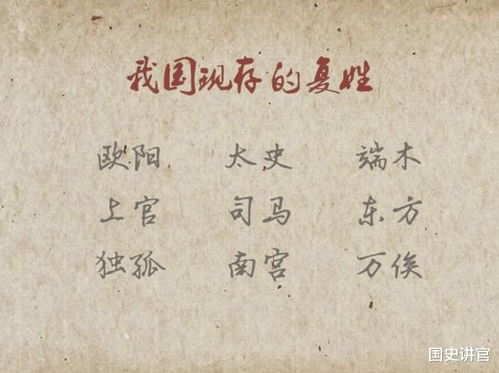 我国现存的复姓
欧阳 太史 端木
上官 司马 东方
独孤 南宫 万俟
国史讲官